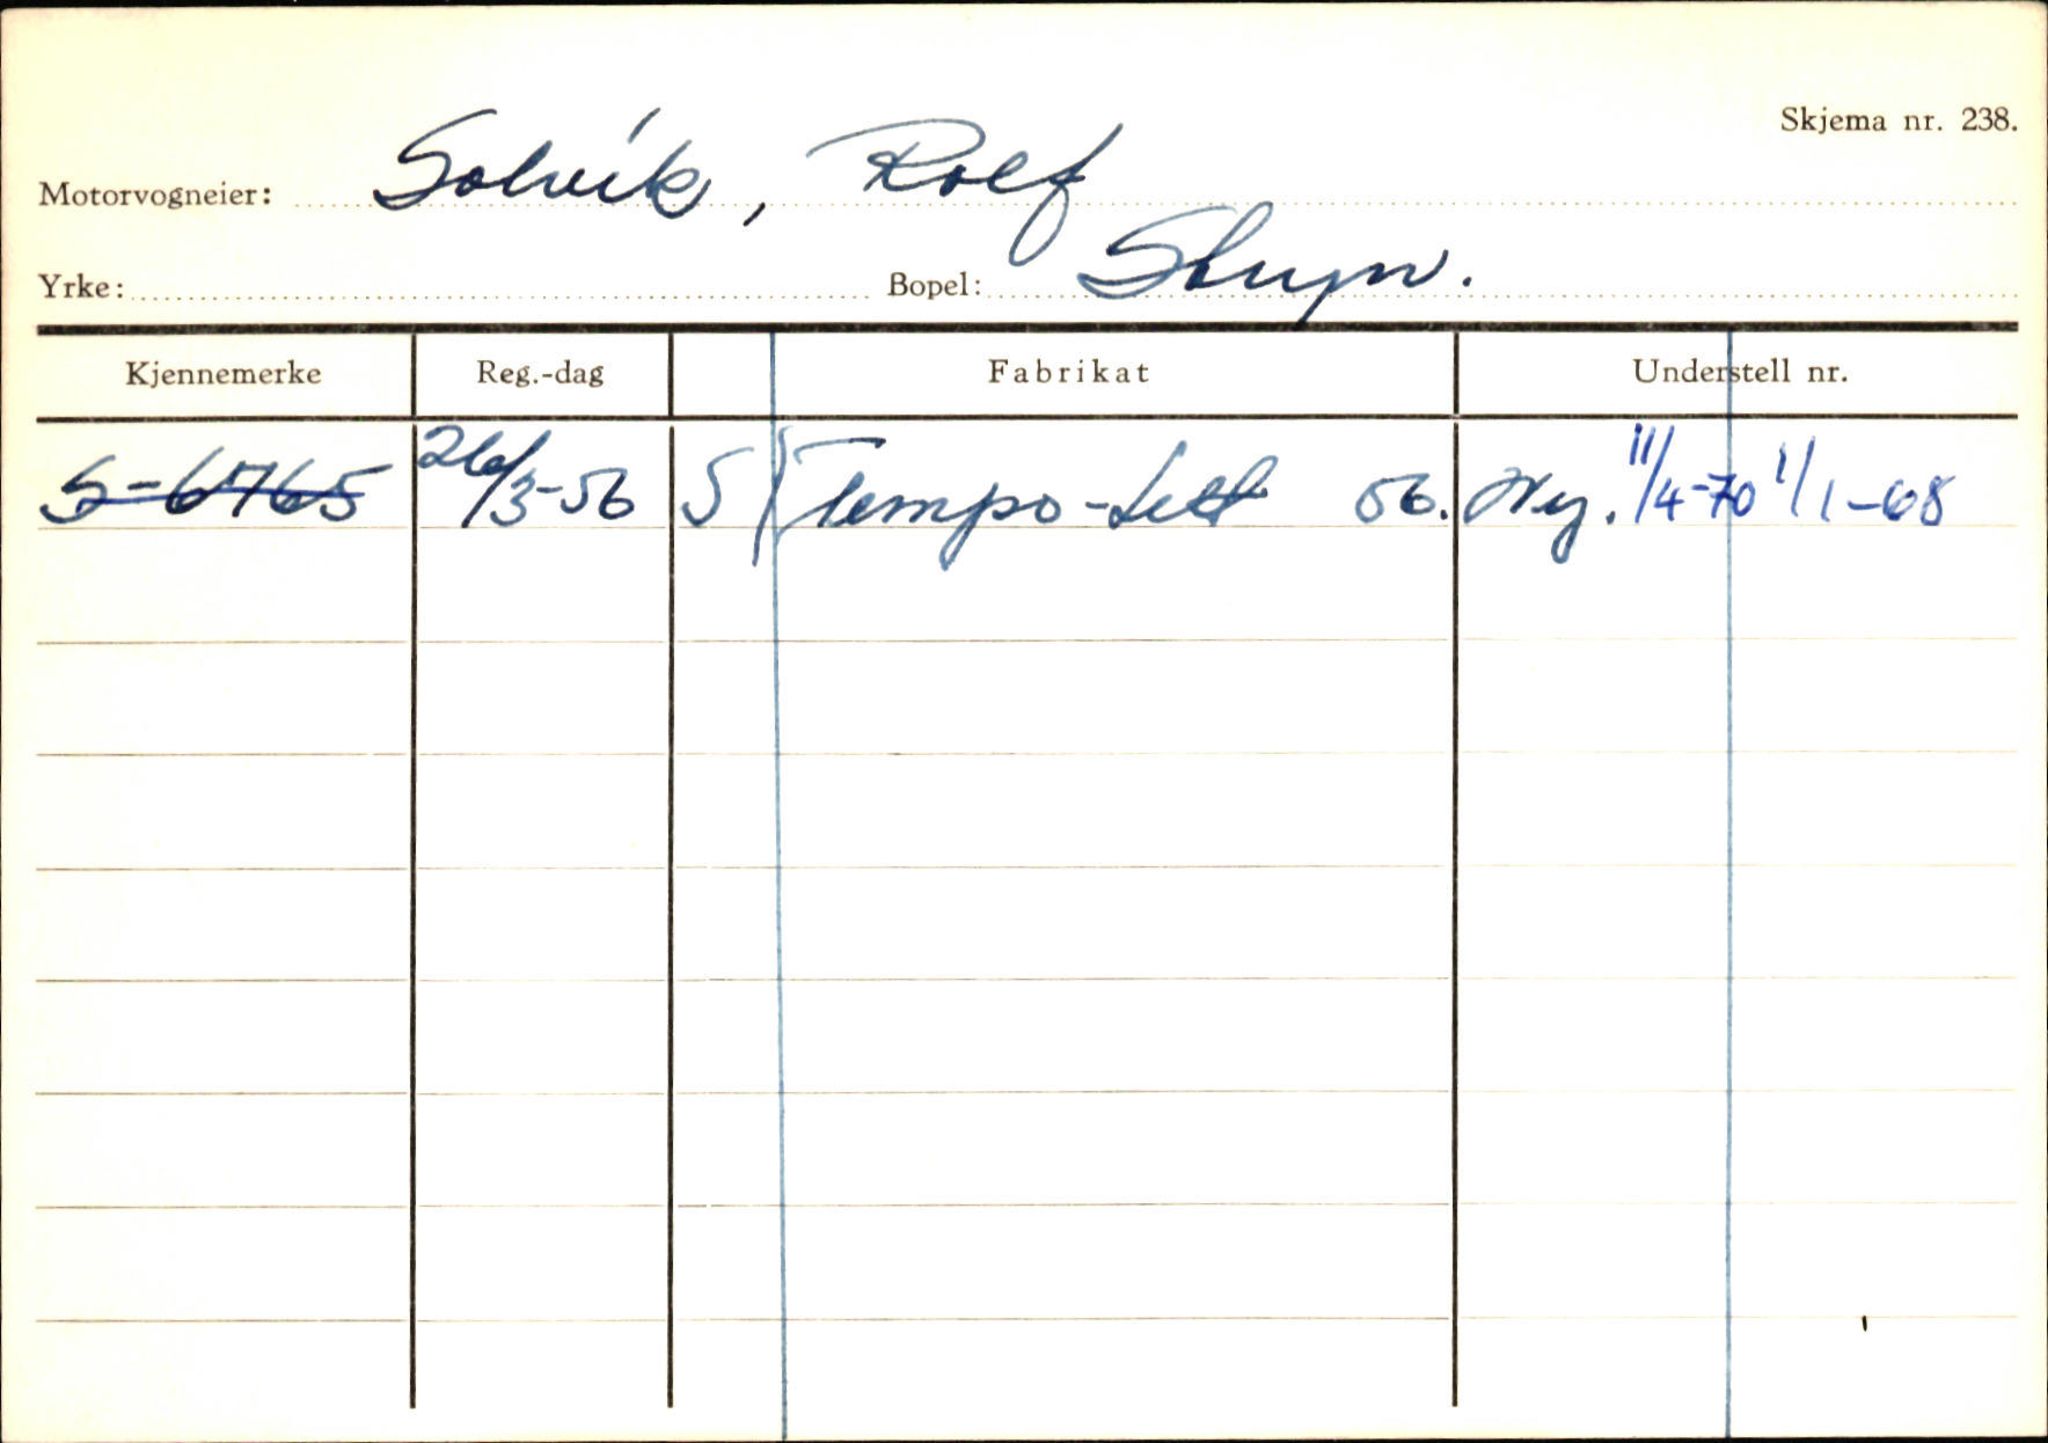 Skjema nr. 238.
Motorvogneier: Solvik, Rolf
Yrke: Bopel: Stryn.
Kjennemerke Reg.-dag Fabrikat Understell nr.
S-6765 26/3-56 S Tempo-Lett 56. Ny. 11/4-70 1/1-68